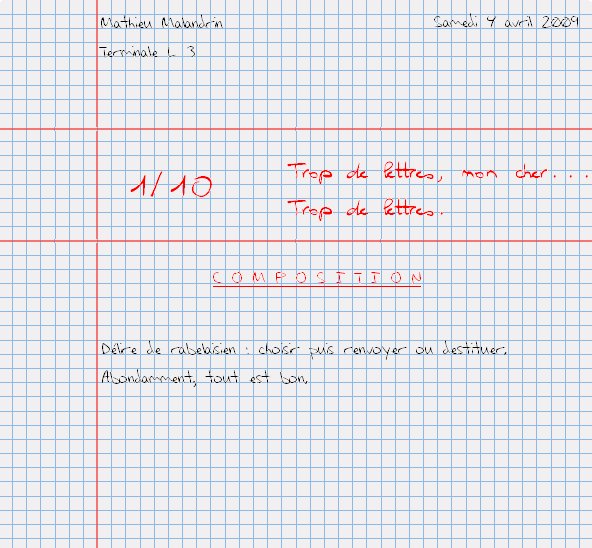 Mathieu Malandrin
Samedi 4 avril 2009
Terminale L 3
1/10
Trop de lettres, mon cher...
Trop de lettres.
COMPOSITION
Délire de rabelaisien : choisir puis renvoyer ou destituer.
Abondamment, tout est bon.